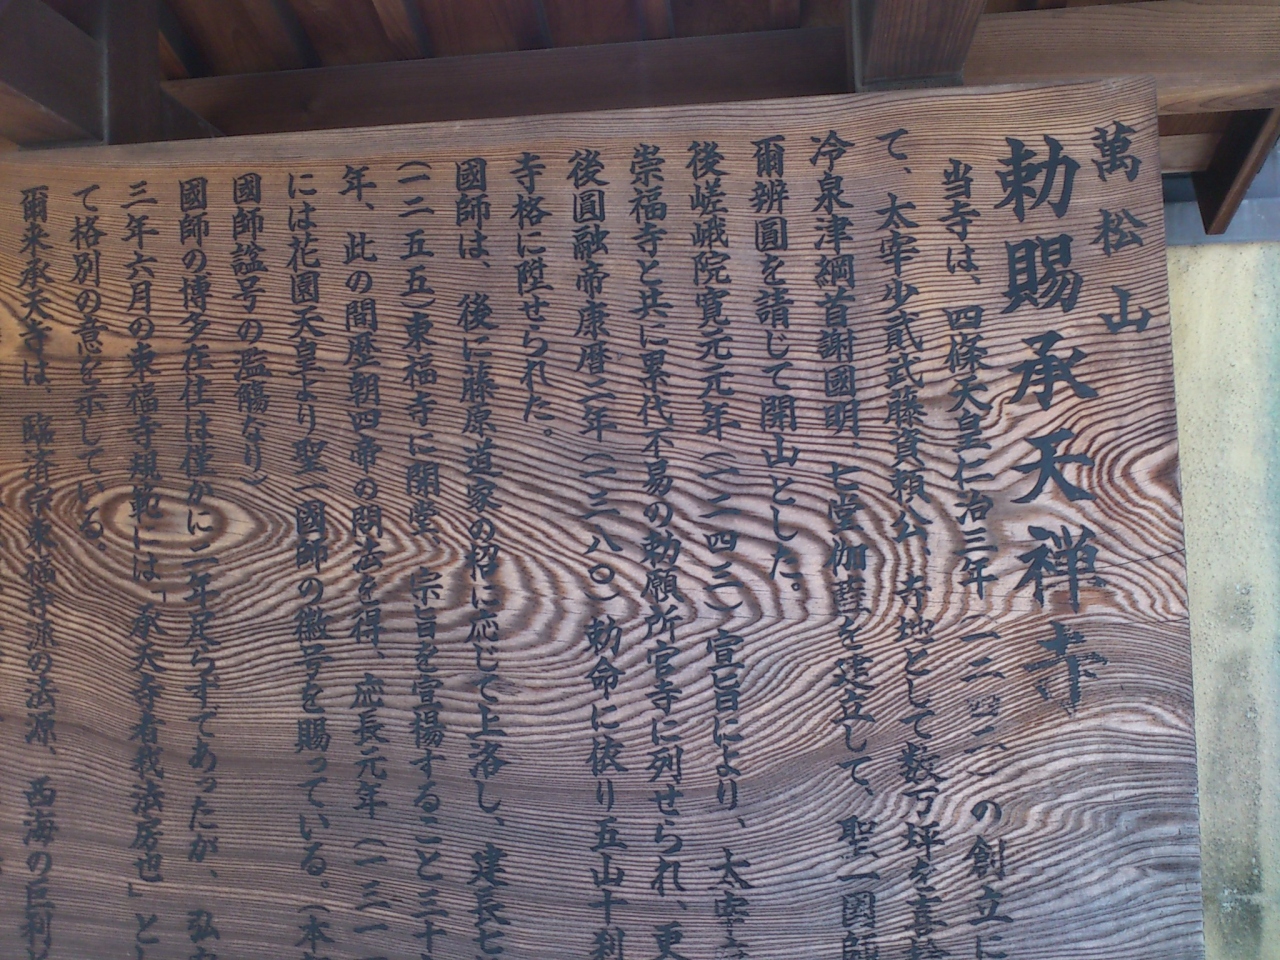 萬松山
勅賜承天禅寺
当寺は、四條天皇仁治三年(一二四二)の創立に
て、太宰少貳武藤資頼公、寺地として数万坪を喜捨
冷泉津綱首謝國明、七堂伽藍を建立して、聖一国師
爾辨圓を請じて開山とした。
後嵯峨院寛元元年(一二四三)宣旨により、太宰
崇福寺と共に累代不易の勅願所官寺に列せられ、更
後圓融帝康暦二年(一三八〇)勅命に依り五山十刹
寺格に陞せられた。
國師は、後に藤原道家の招に応じて上洛し、建長七
(一二五五)東福寺に開堂、宗旨を宣揚すること三十
年、此の間歴朝四帝の問法を得、応長元年(一三一
には花園天皇より聖一國師の徽号を賜っている。(本
國師諡号の濫觴なり)
國師の博多在住は僅かに二年足らずであったが、弘
三年六月の東福寺規範には「承天寺者我法房也」とし
て格別の意を示している。
爾来承天寺は、臨済宗東福寺派の法源、西海の巨刹